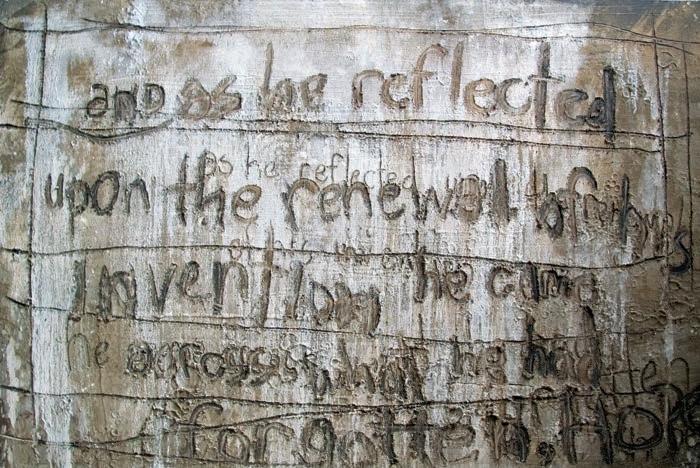 and as he reflected
as he reflected
upon the renewal of his
invention he came
he across what he had
forgotten, HO